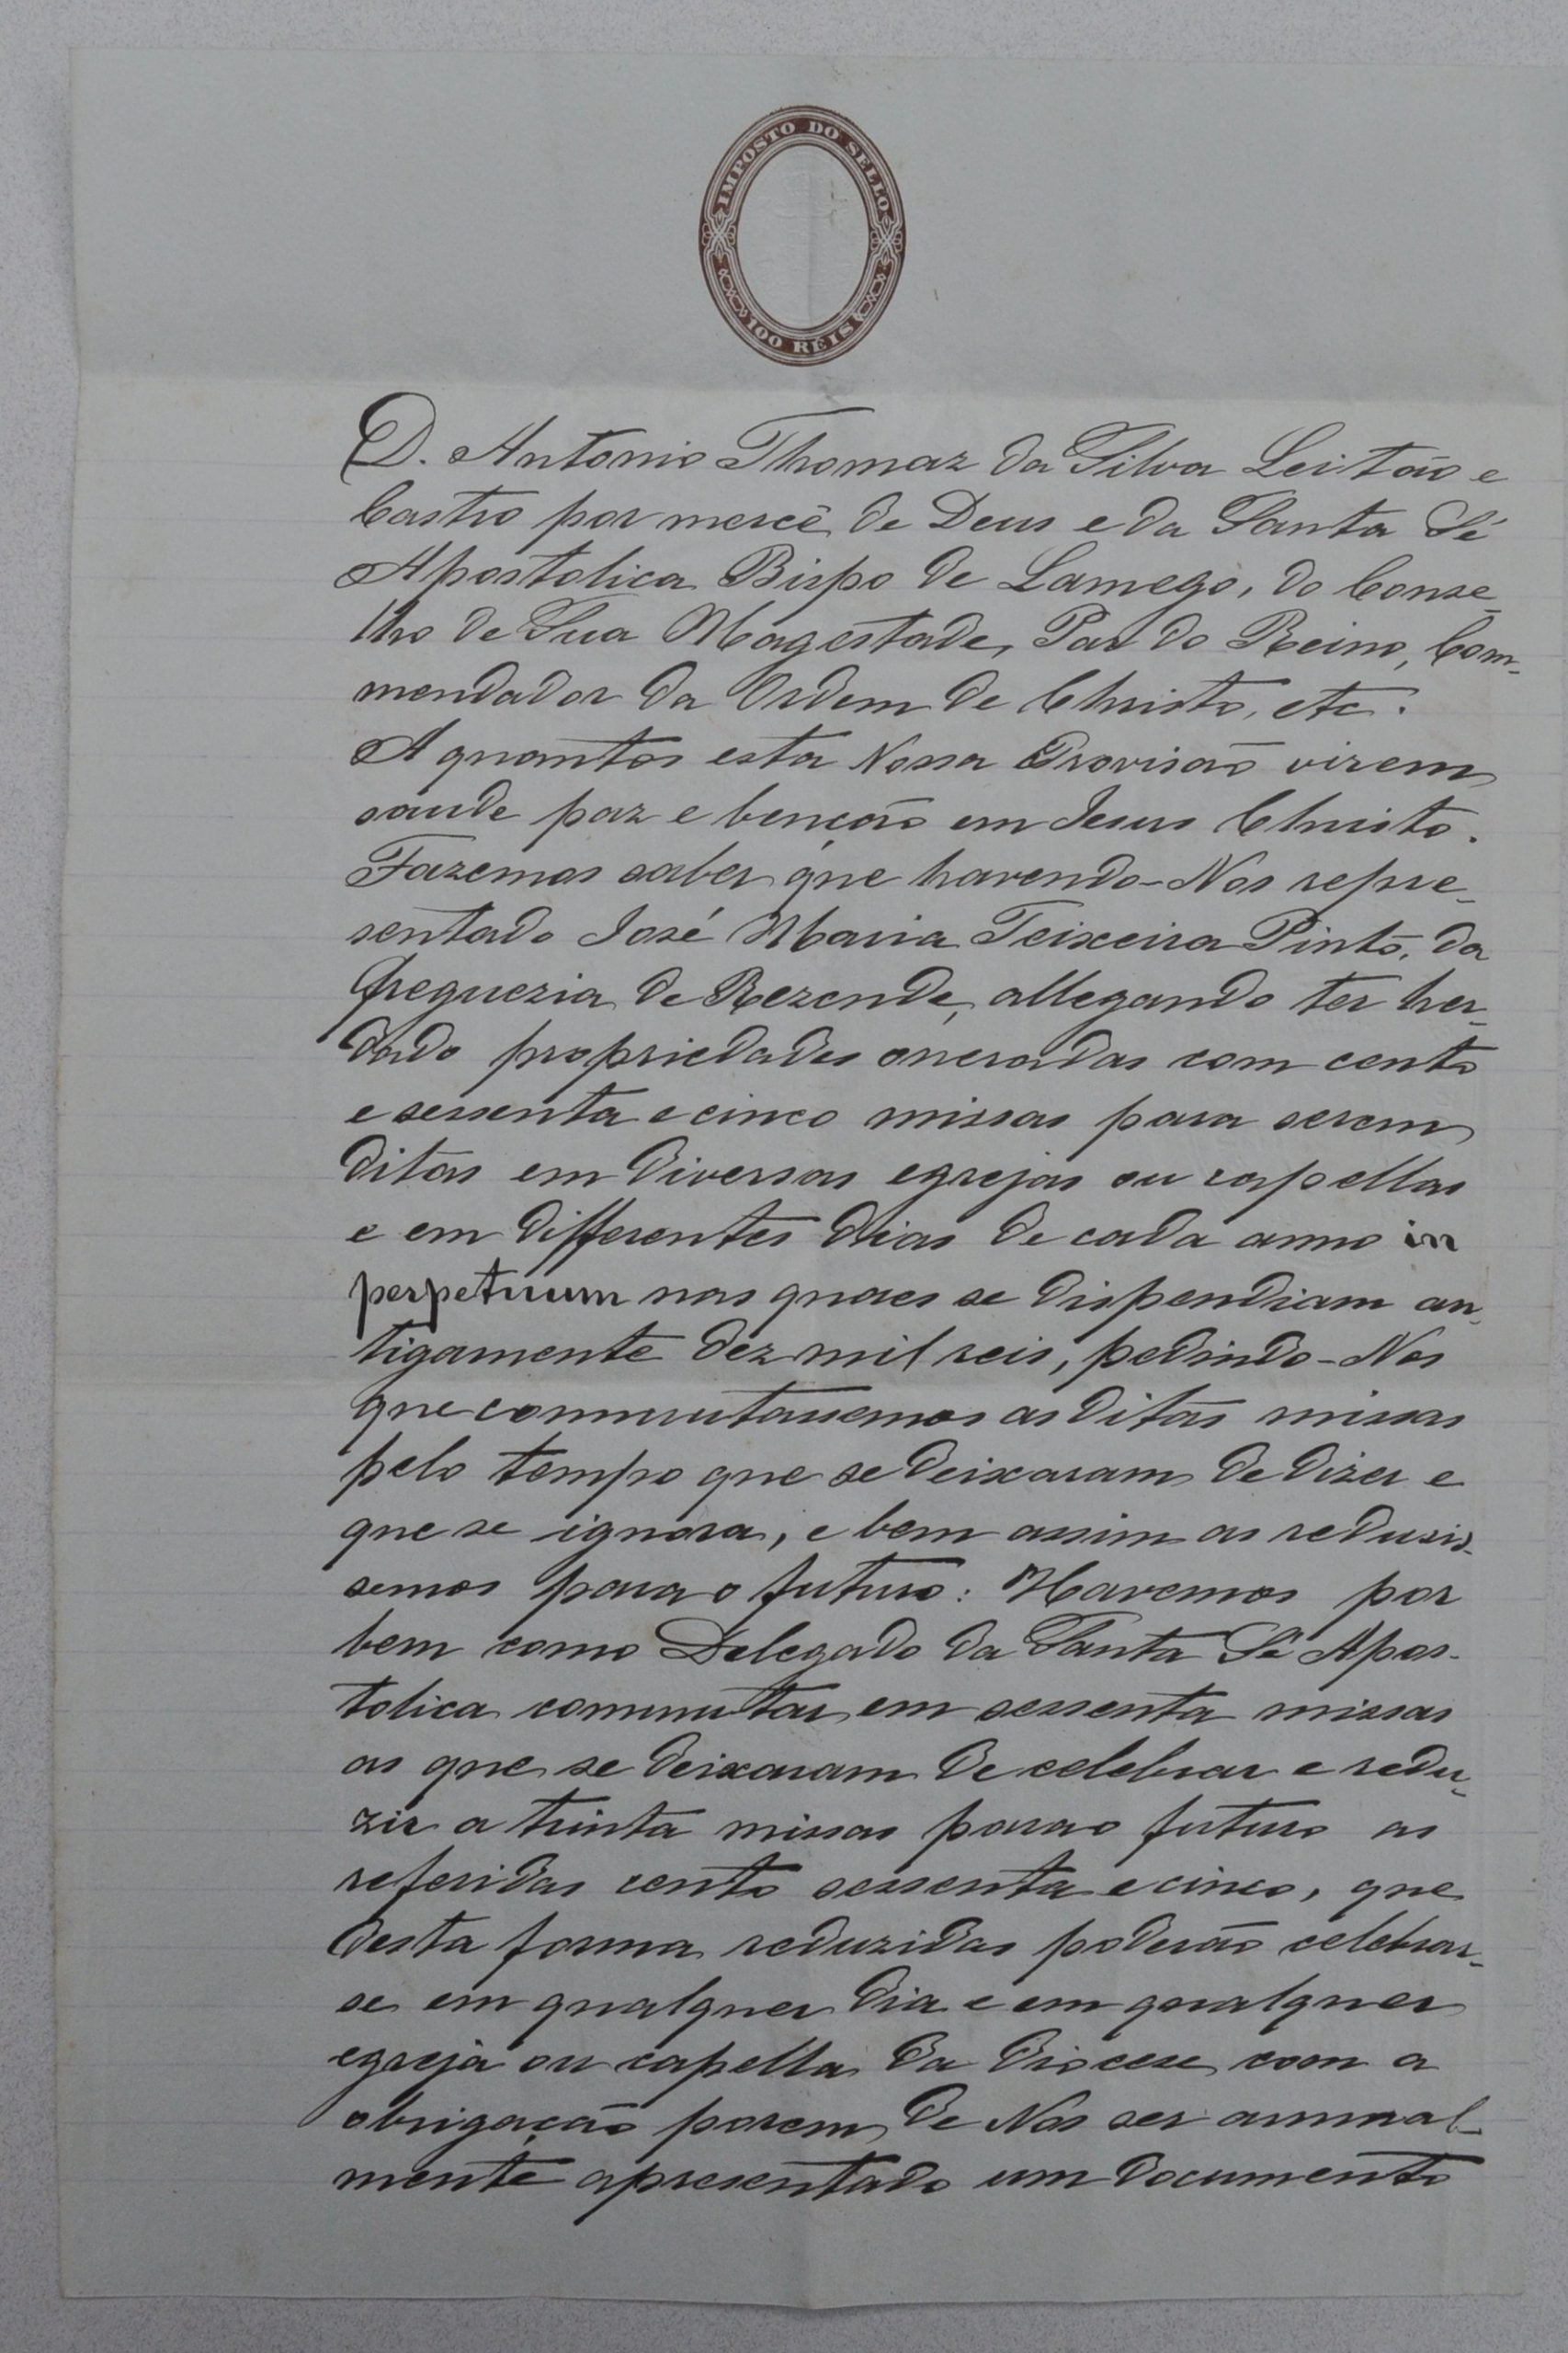 IMPOSTO DO SELLO
100 RÉIS
D. Antonio Thomaz da Silva Leitão e
Castro por mercê de Deus e da Santa Sé
Apostolica Bispo de Lamego, do Conse-
lho de Sua Magestade, Par do Reino, Com-
mendador da Ordem de Christo, etc.
A quantos esta Nossa Provisão virem
saude paz e benção em Jesus Christo.
Fazemos saber que havendo-Nos repre-
sentado José Maria Teixeira Pinto, da
freguezia de Rezende, allegando ter her-
dado propriedades oneradas com cento
e sessenta e cinco missas para serem
ditas em diversas egrejas ou capellas
e em differentes dias de cada anno in
perpetuum nas quaes se dispendiam an-
tigamente dez mil reis, pedindo-Nos
que commutassemos as ditas missas
pelo tempo que se deixaram de dizer e
que se ignora, e bem assim as reduzis-
semos para o futuro: Havemos por
bem como Delegado da Santa Sé Apos-
tolica commutar em sessenta missas
as que se deixaram de celebrar e redu-
zir a trinta missas para o futuro as
referidas cento sessenta e cinco, que
desta forma reduzidas poderão celebrar-
se em qualquer dia e em qualquer
egreja ou capella da Diocese com a
obrigação porem de Nos ser annual-
mente apresentado um documento